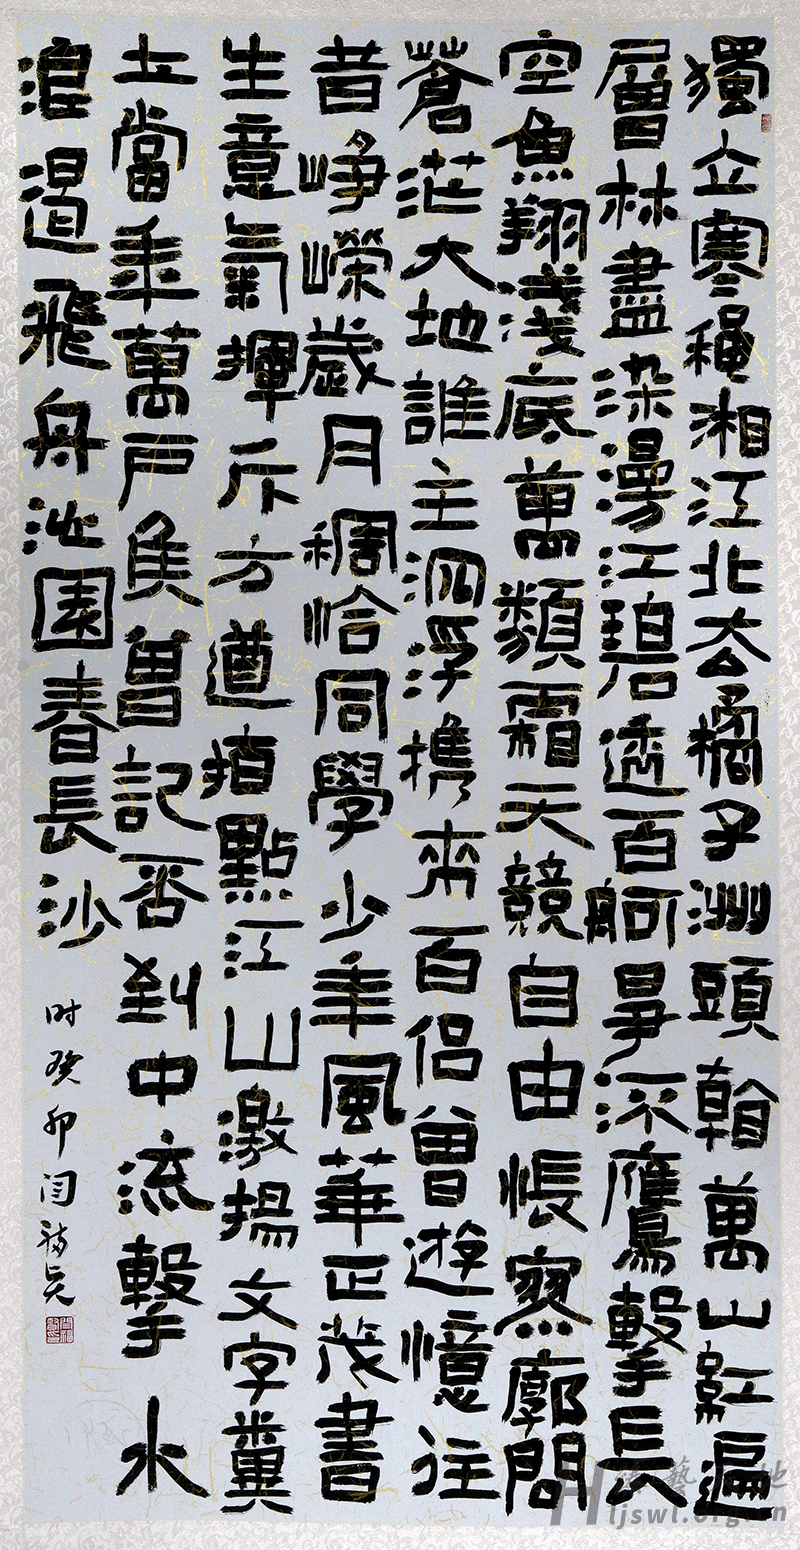 獨立寒穐湘江北去橘子洲頭看萬山紅遍
層林盡染漫江碧透百舸爭流鷹擊長
空魚翔淺底萬類霜天競自由悵寥廓問
蒼茫大地誰主沉浮携來百侶曾遊憶往
昔崢嶸歲月稠恰同學少年風華正茂書
生意氣揮斥方遒指點江山激揚文字糞
土當年萬戶矦曾記否到中流擊水
浪遏飛舟沁園春長沙
时癸卯闫福
Hljswl.org.cn